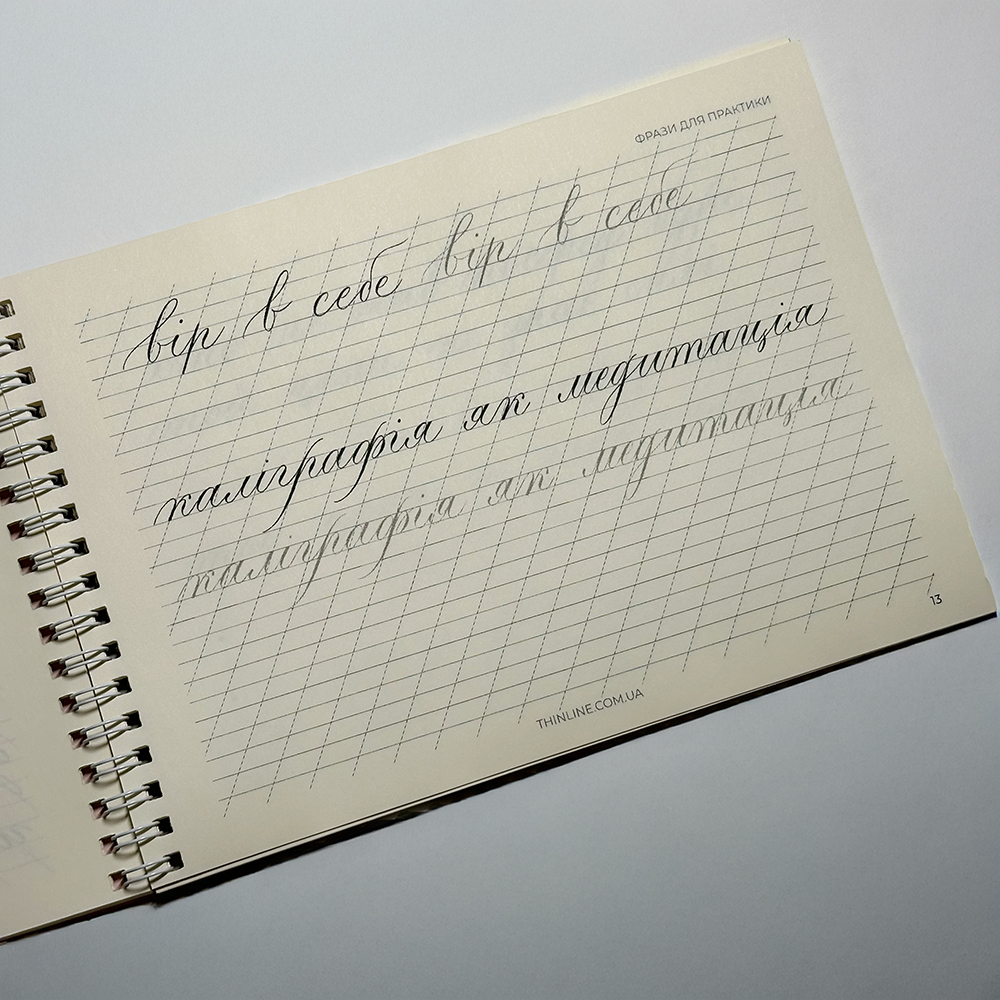 ФРАЗИ ДЛЯ ПРАКТИКИ
вір в себе вір в себе
каліграфія як медитація
каліграфія як медитація
13
THINLINE.COM.UA